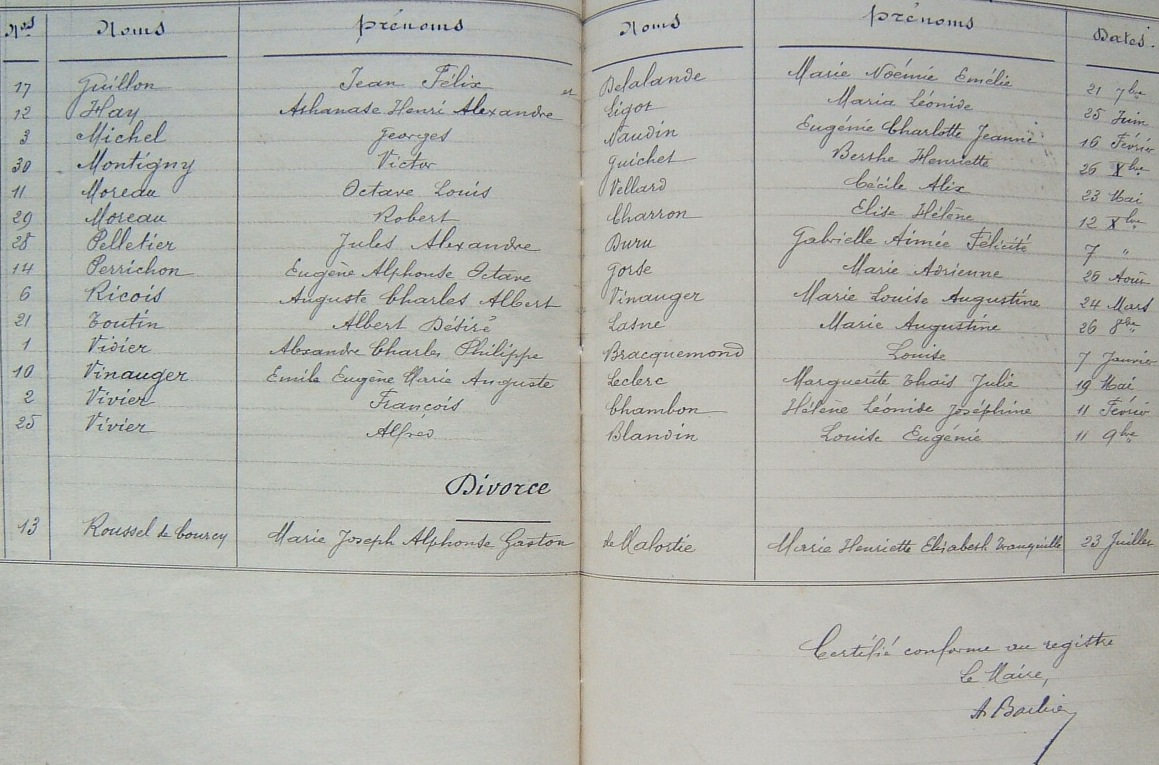 Nos Noms Prénoms Noms Prénoms Dates.
17 Guillon Jean Félix et Delalande Marie Noémie Emélie 21 7bre
12 Hay Athanase Henri Alexandre Gigot Maria Léonide 25 Juin
3 Michel Georges Naudin Eugénie Charlotte Jeanne 16 Février
30 Montigny Victor Guichet Berthe Henriette 26 Xbre
11 Moreau Octave Louis Vellard Cécile Alix 23 Mai
29 Moreau Robert Charron Elise Hélène 12 Xbre
28 Pelletier Jules Alexandre Duru Gabrielle Aimée Félicité 7 "
14 Perrichon Eugène Alphonse Octave Gorse Marie Adrienne 26 Août
6 Ricois Auguste Charles Albert Vinauger Marie Louise Augustine 24 Mars
21 Toutin Albert Désiré Lasne Marie Augustine 26 8bre
1 Vivier Alexandre Charles Philippe Bracquemond Louise 7 Janvier
10 Vinauger Emile Eugène Marie Auguste Leclerc Marguerite Thaïs Julie 19 Mai
2 Vivier François Chambon Hélène Léonide Joséphine 11 Février
25 Vivier Alfred Blandin Louise Eugénie 11 9bre
Divorce
13 Roussel de Courcy Marie Joseph Alphonse Gaston de Malortie Marie Henriette Elisabeth Tranquille 23 Juillet
Certifié conforme au registre
Le Maire,
A. Barbier